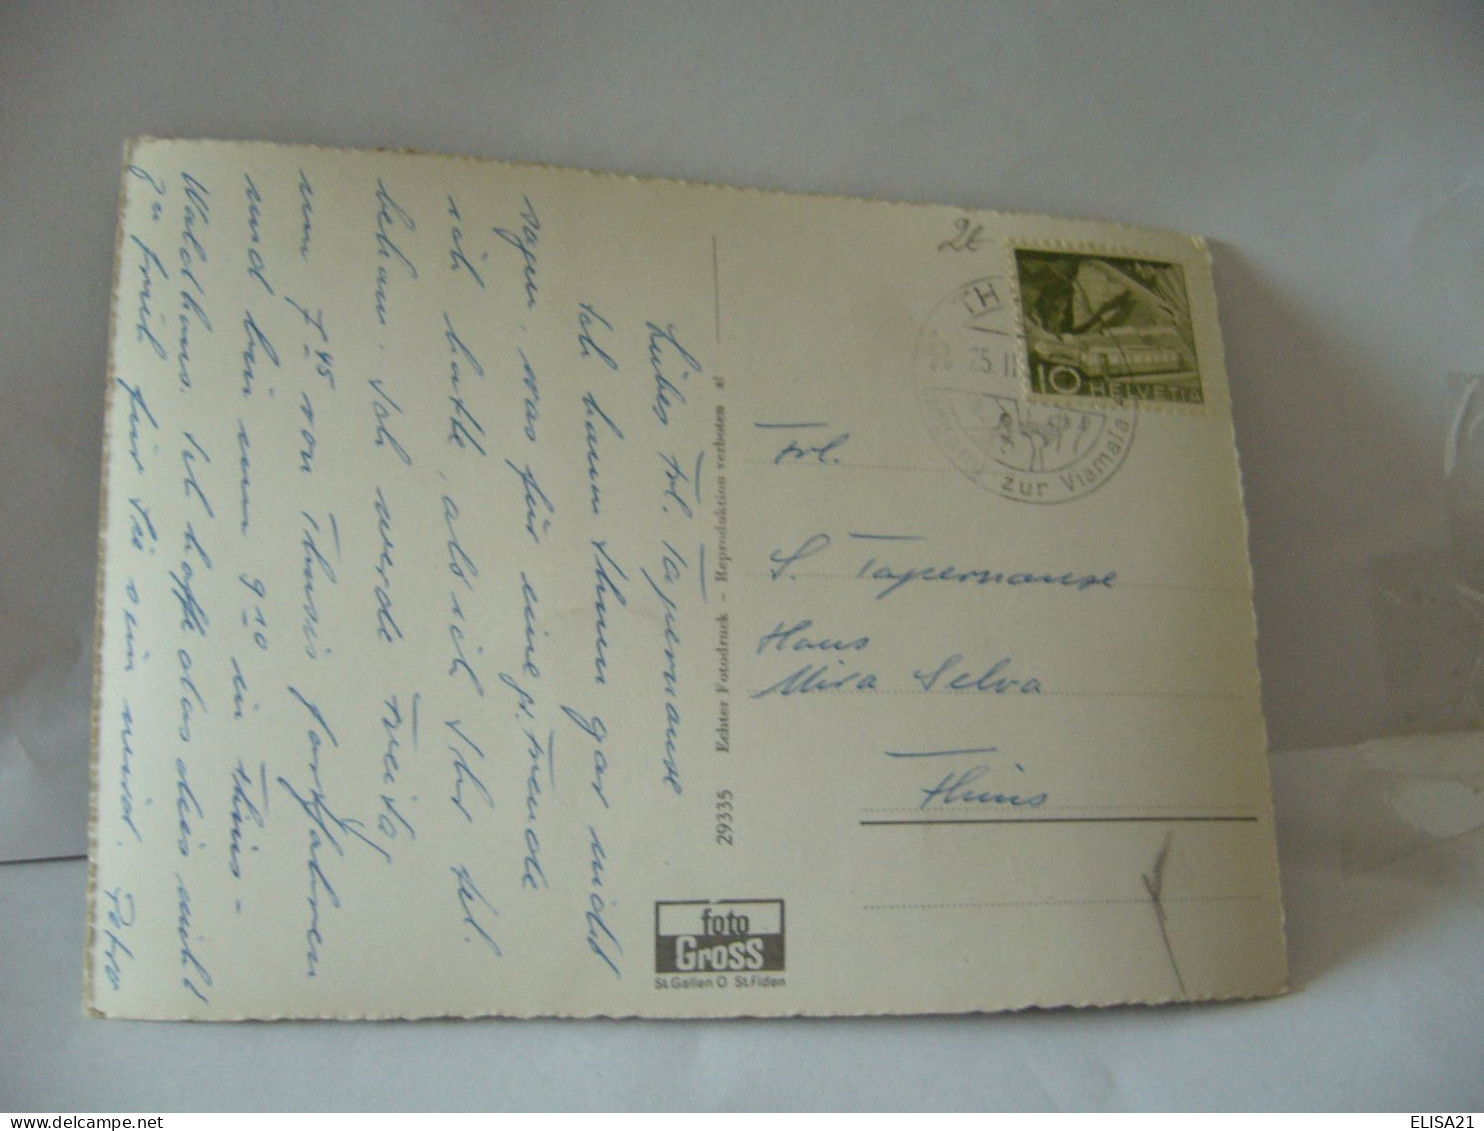 Liebes Frl. Tapernause
Ich kann Ihnen gar nicht
sagen, was für eine gr. Freude
ich hatte, als ich Ihr tel.
bekam. Ich werde Freitag
um 7 45 von Thusis fortfahren
und bin um 9 10 in Flims-
Waldhaus. Ich hoffe dass dies nicht
zu früh für Sie sein wird.
29335 Echter Fotodruck - Reproduktion verboten sl
foto
Gross
St.Gallen O St.Fiden
2€
TH
25.II
zur Viamala
10 HELVETIA
Frl.
S. Tapernause
Haus
Mira Selva
Flims
ELISA21